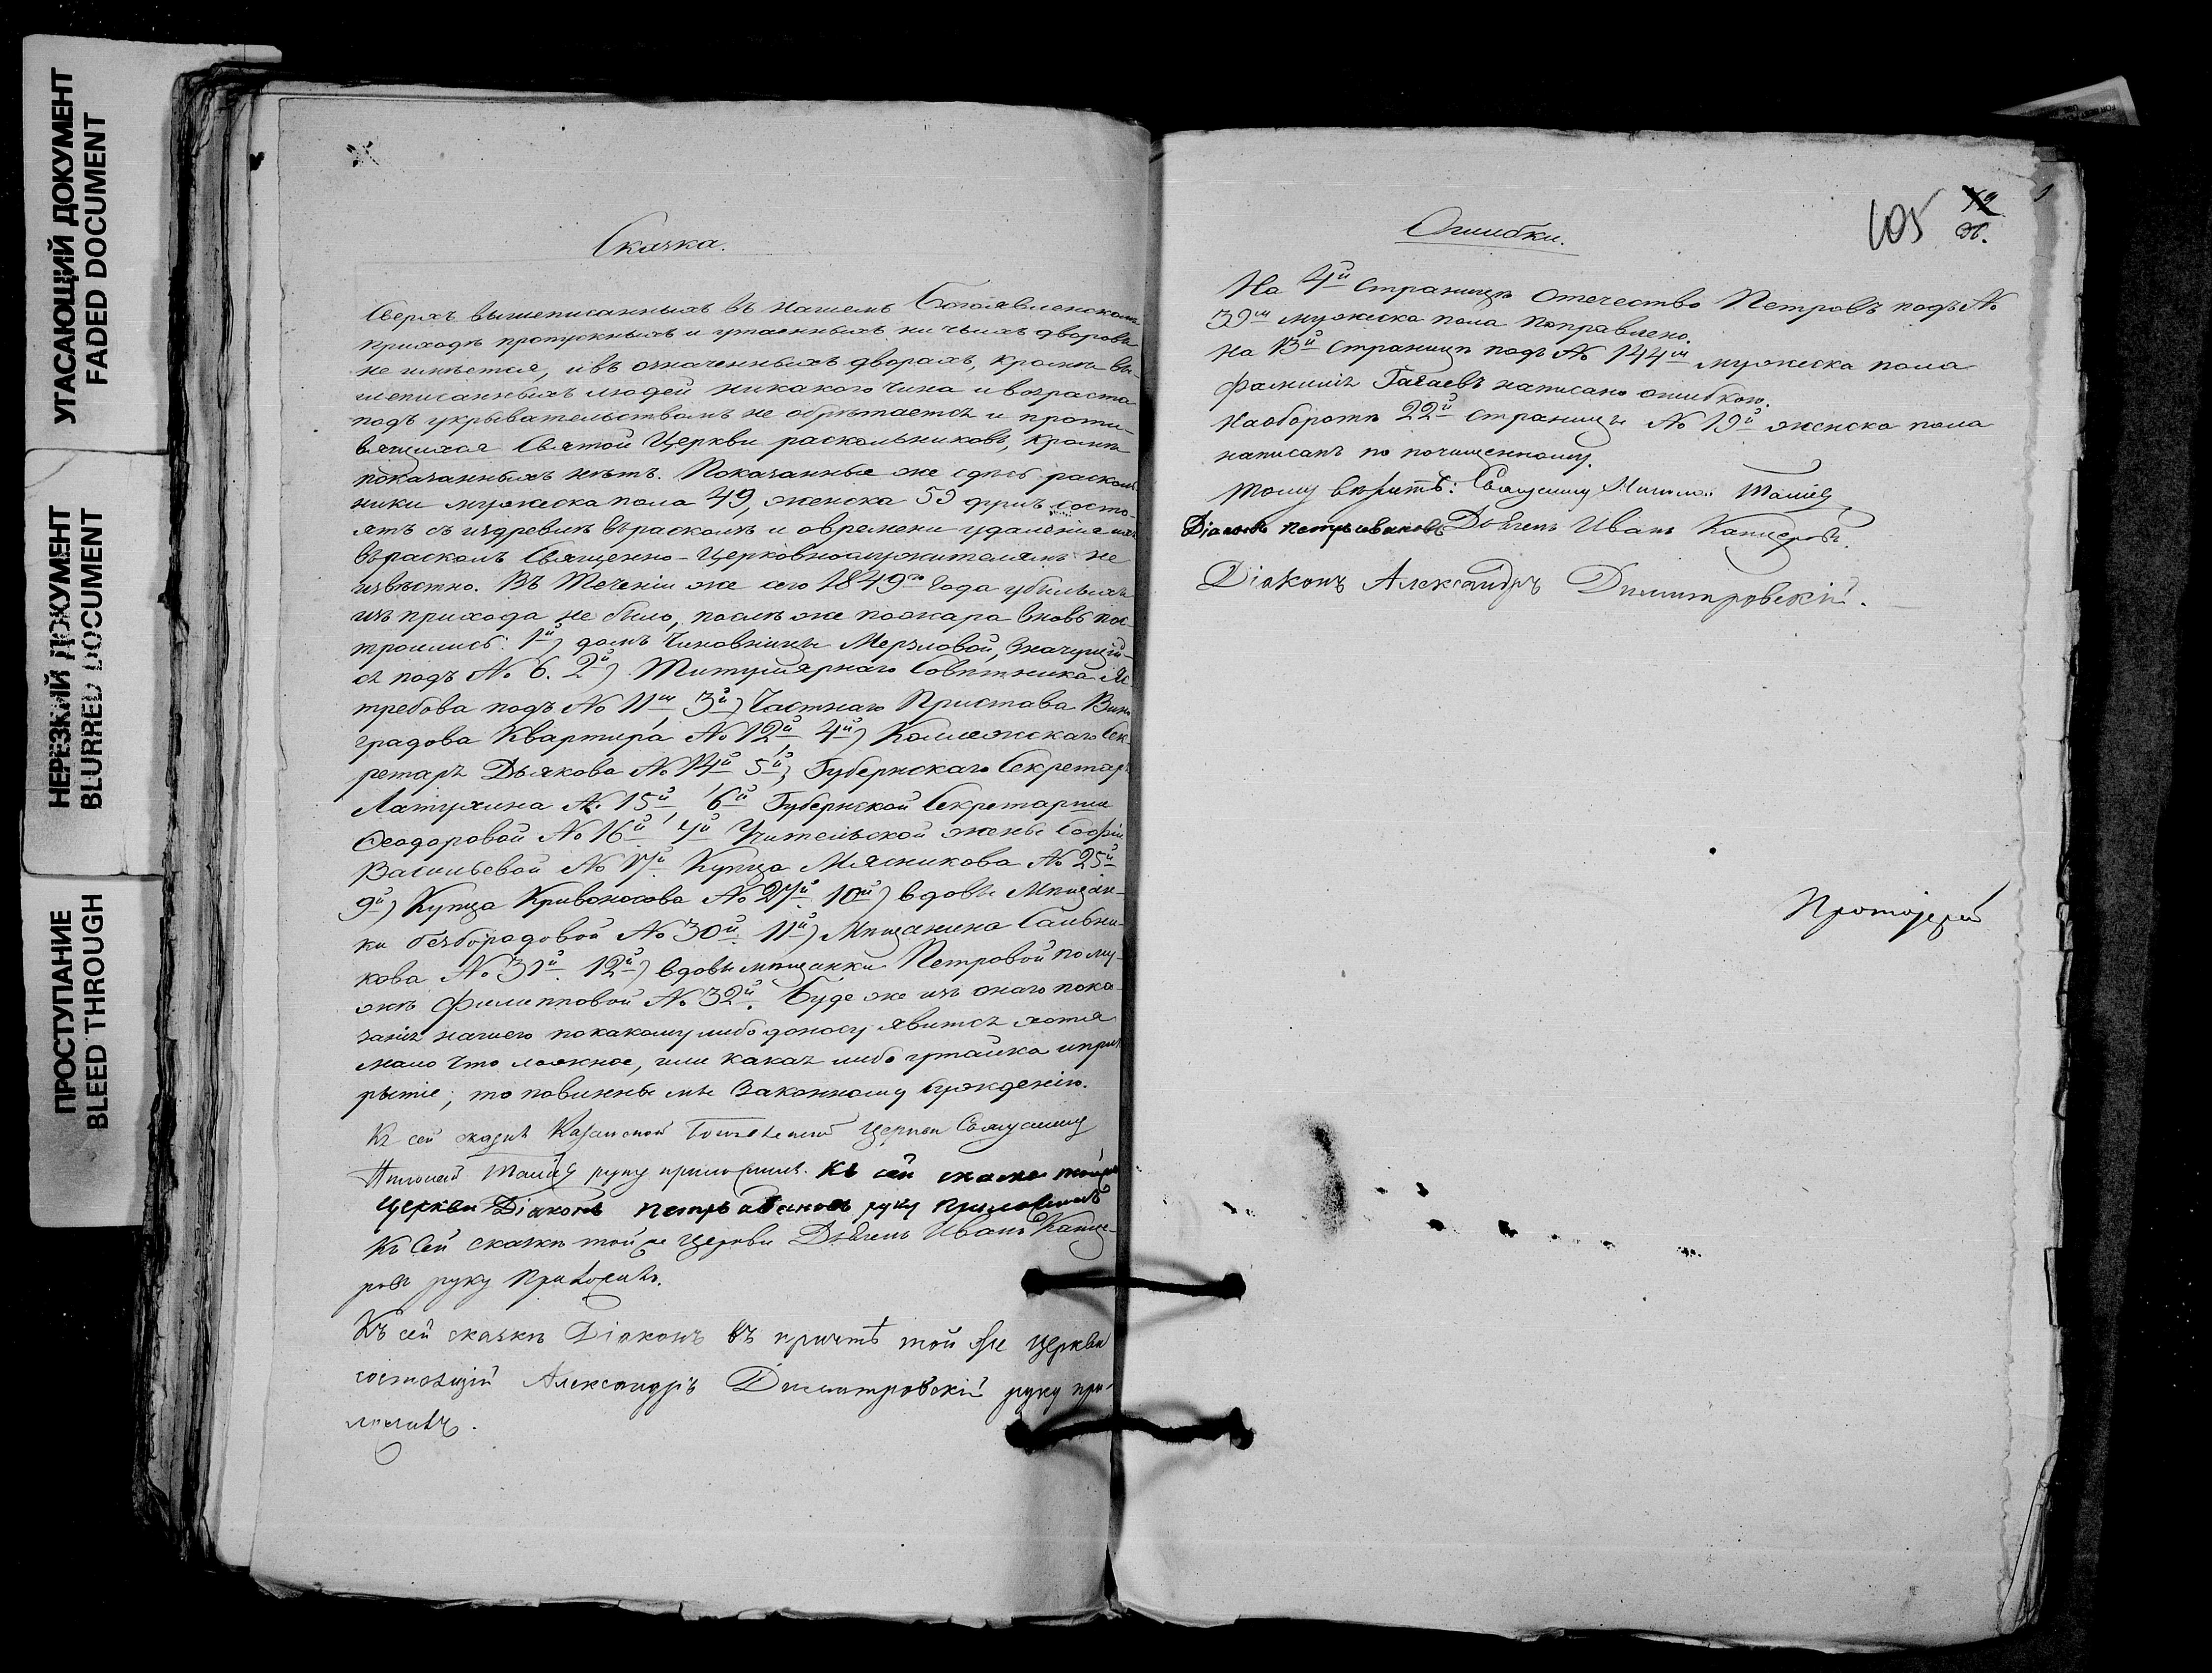 УГАСАЮЩИЙ ДОКУМЕНТ
FADED DOCUMENT
НЕРЕЗКИЙ ДОКУМЕНТ
BLURRED DOCUMENT
ПРОСТУПАНИЕ
BLEED THROUGH
Сказка.
Сверхъ вышеписанныхъ въ нашемъ Богоявленскомъ
приходѣ пропускныхъ и утаенныхъ ни чьихъ дворовъ
не имѣется, и въ означенныхъ дворахъ, кромѣ вы-
шеписанныхъ людей никакого чина и возраста
подъ укрывательствомъ не обрѣтается и проти-
вящихся Святой Церкви раскольниковъ, кромѣ
показанныхъ нѣтъ. Показанные же здѣсь расколь
ники мужеска пола 49, женска 59 душъ состо-
ятъ съ издревлѣ въ расколѣ и о времени удаленіе ихъ
въ расколъ Священно-Церковнослужителямъ не
извѣстно. Въ теченіи же сего 1849го года убылыхъ
изъ прихода не было, послѣ же пожара вновь пос
троились: 1й) домъ Чиновницы Мерзловой, значущій-
ся подъ № 6. 2й) Титулярнаго Совѣтника Яс
требова подъ № 11м, 3й) Частнаго Пристава Вино
градова Квартира № 12й, 4й) Коллежскаго Сек-
ретаря Дьякова № 14й, 5й) Губернскаго Секретаря
Латухина № 15й, 6й Губернской Секретарши
Ѳеодоровой № 16й, 7й Учительской жены Софіи
Васильевой № 17й Купца Мясникова № 25й
9й) Купца Кривоносова № 27й. 10й) вдовы Мѣщан-
ки Безбородовой № 30й. 11й) Мѣщанина Сальни-
кова № 31й. 12й) вдовы мѣщанки Петровой по му-
жѣ Филипповой № 32й. Буде же изъ онаго пока
занія нашего по какому либо доносу явится хотя
мало что ложное, или какая либо утайка и прик
рытіе; то повинны мы Законному сужденію.
Къ сей сказкѣ Казанской Церкви Священникъ
руку приложилъ. Къ сей сказке тойже
Церкви Діаконъ Петръ Ивановъ руку приложилъ
Къ сей сказки той же Церкви Дьячекъ Иванъ Канце-
ровъ руку приложилъ.
Къ сей сказкѣ Діаконъ въ причтѣ той же Церкви
состоящій Александръ Димитровскій руку при-
ложилъ.
105
Ошибки.
На 4й страницѣ отечество Петровъ подъ №
39м мужеска пола поправлено.
На 13й страницѣ подъ № 144м мужеска пола
фамилія Гагаевъ написано ошибкою.
На оборотѣ 22й страницы № 19й женска пола
написанъ по почищенному.
Тому вѣритъ: Священникъ
Діаконъ Петръ Ивановъ Дьячекъ Иванъ Канцеровъ.
Діаконъ Александръ Димитровскій.
Протоіерей